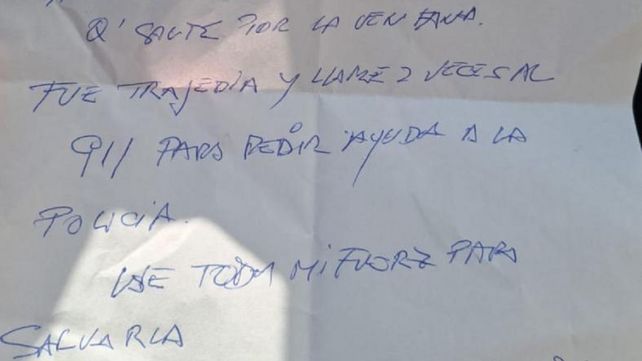 Q' SALTE POR LA VENTANA.
FUE TRAJEDIA Y LLAME 2 VECES AL
911 PARA PEDIR AYUDA A LA
POLICIA.
USE TODA MI FUERZ PARA
SALVARLA